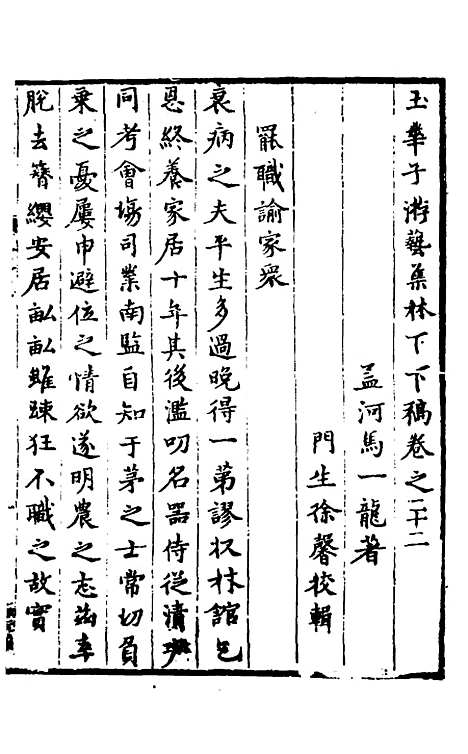 玉華子游藝集林下下稿卷之二十二
孟河馬一龍著
門生徐馨校輯
罷職諭家衆
衰病之夫平生多過晚得一第謬收林館乞
恩終養家居十年其後濫叨名器侍從漬
同考會塲司業南監自知于茅之士常切負
乗之憂屢申避位之情欲遂明農之志茲幸
脫去簪纓安居畝畝雖踈狂不職之故實